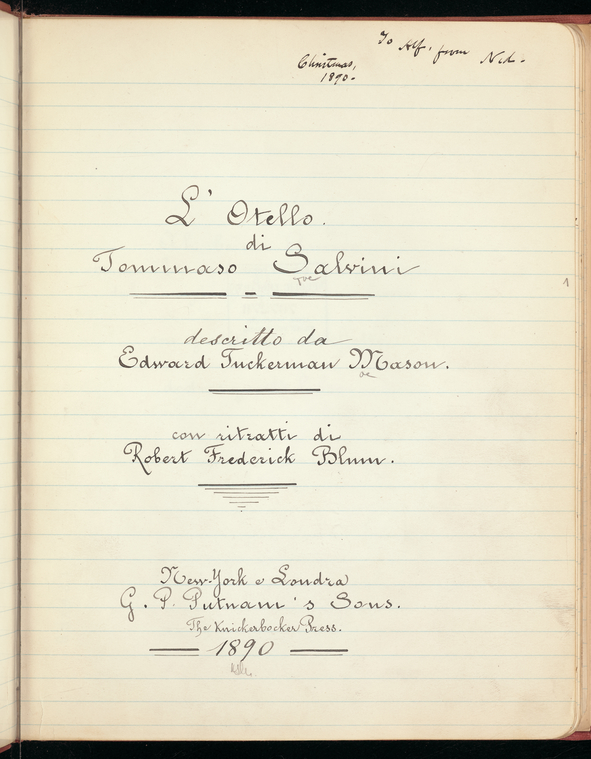 To Alf, from Ned.
Christmas,
1890.
L' Otello.
di
Tommaso Salvini
descritto da
Edward Tuckerman Mason.
con ritratti di
Robert Frederick Blum.
New-York e Londra
G. P. Putnam's Sons.
The Knickerbocker Press.
1890
1